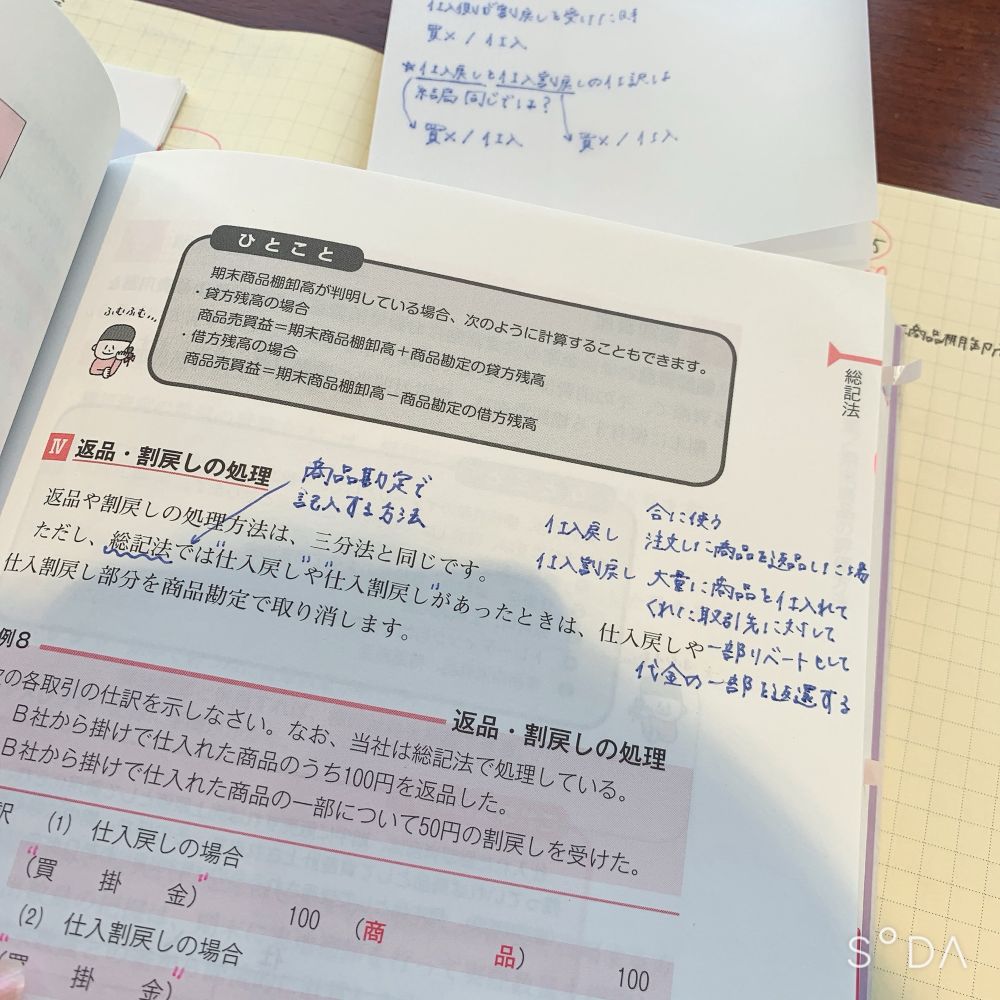 仕入側が割戻しを受けた時
買× / 仕入
*仕入戻しと仕入割戻しの仕訳は
結局同じでは?
買× / 仕入 買× / 仕入
ひとこと
期末商品棚卸高が判明している場合、次のように計算することもできます。
・貸方残高の場合
商品売買益=期末商品棚卸高+商品勘定の貸方残高
・借方残高の場合
商品売買益=期末商品棚卸高-商品勘定の借方残高
ふむふむ…
総記法
Ⅳ 返品・割戻しの処理
商品勘定で
記入する方法
返品や割戻しの処理方法は、三分法と同じです。
ただし、総記法では"仕入戻し"や"仕入割戻し"があったときは、仕入戻しや
仕入割戻し部分を商品勘定で取り消します。
仕入戻し
合に使う
注文した商品を返品した場
仕入割戻し
大量に商品を仕入れて
くれた取引先に対して
一部リベートとして
代金の一部を返還する
例8
返品・割戻しの処理
の各取引の仕訳を示しなさい。なお、当社は総記法で処理している。
B社から掛けで仕入れた商品のうち100円を返品した。
B社から掛けで仕入れた商品の一部について50円の割戻しを受けた。
訳 (1) 仕入戻しの場合
(買掛金) 100 (商品) 100
(2) 仕入割戻しの場合
掛金)
SODA